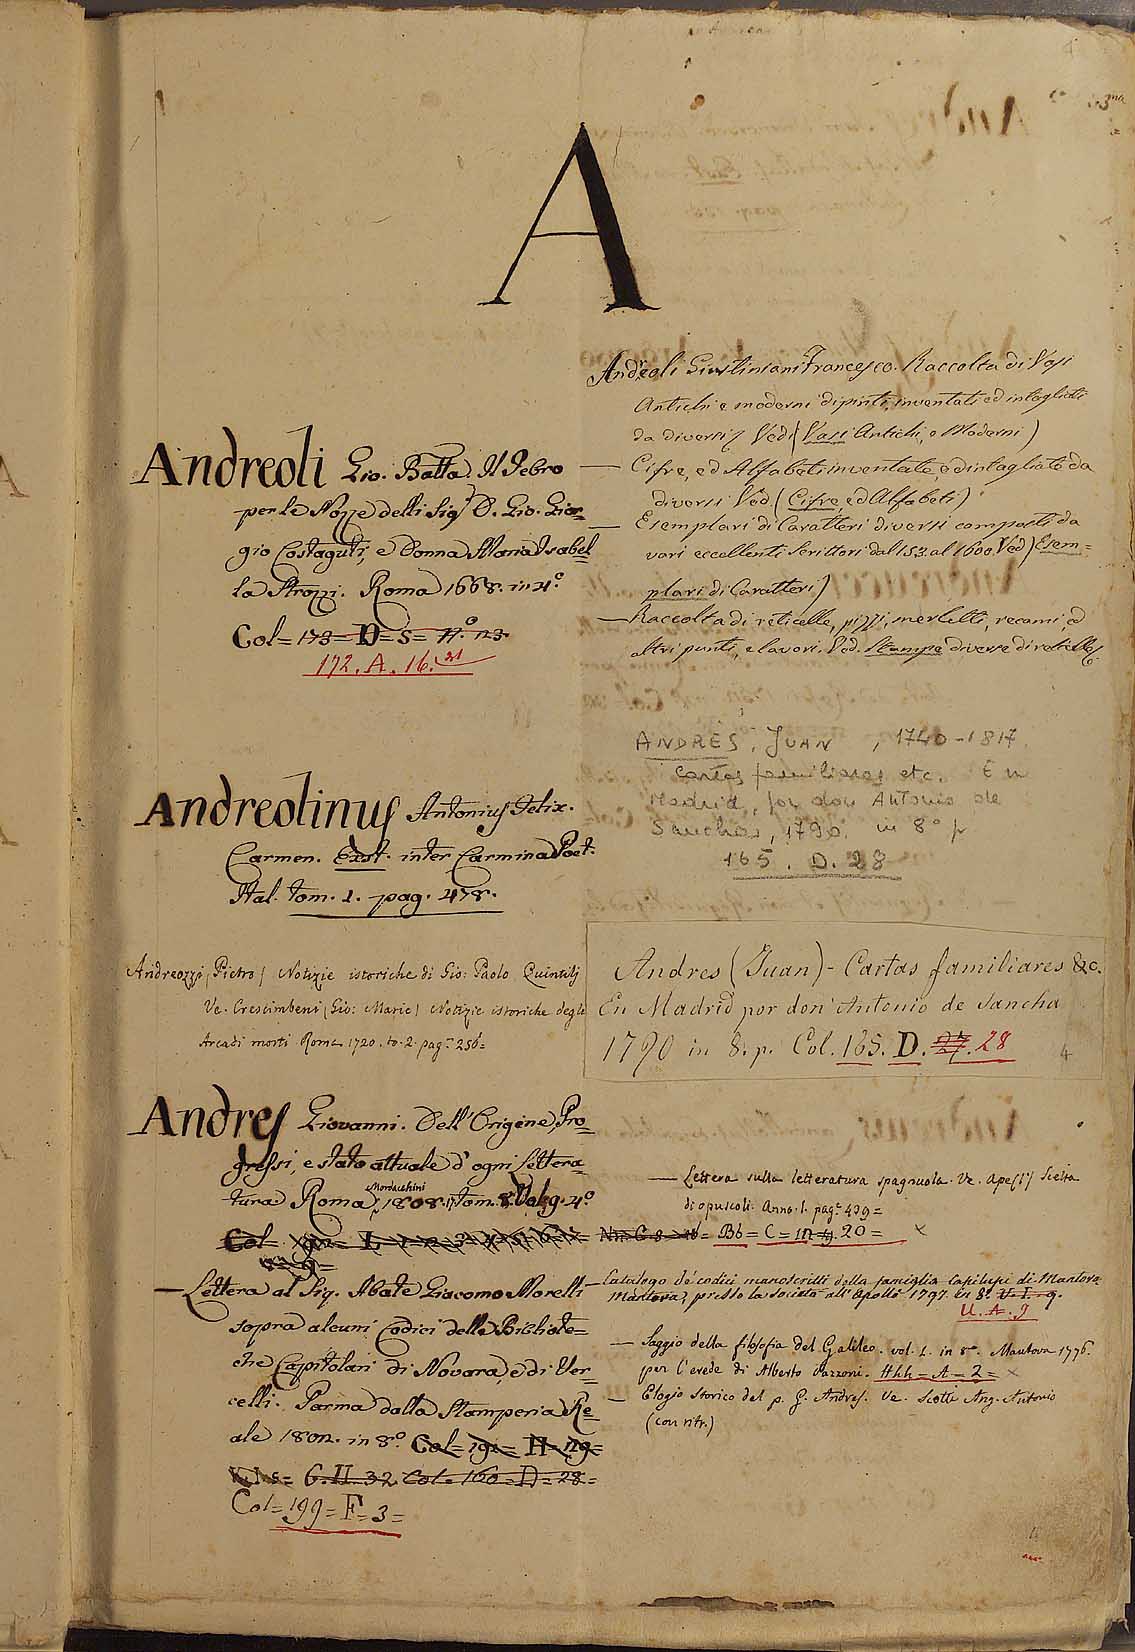 A
Andreoli Gio. Batta. Il Tebro
per le Nozze delli Sig.ri D. Gio. Gior=
gio Costaguti, e Donna Maria Isabel=
la Strozzi. Roma 1668. in 4.º
Col= 173= D= 5= n.º 23.
172. A. 16. 21
Andreolinus Antonius Felix.
Carmen. Exst. inter Carmina Poet.
Ital. tom. 1. pag. 478.
Andreozzi (Pietro) Notizie istoriche di Gio: Paolo Quintilj
Ve. Crescimbeni (Gio: Mario) Notizie istoriche degli
Arcadi morti Roma 1720. to. 2. pag. 256=
Andres Giovanni. Dell'Origine, Pro=
gressi, e stato attuale d'ogni Lettera=
tura Roma Mordacchini 1808. 17 Tom. 8. Vol. 9. 4.º
Col.
— Lettera al Sig. Abate Giacomo Morelli
sopra alcuni Codici delle Bibliote=
che Capitolari di Novara, e di Ver=
celli. Parma dalla Stamperia Re=
ale 1802. in 8.º Col= 191= H= 29=
G. H. 32 Col= 160= D= 28=
Col= 199= F= 3=
Andreoli Giustiniani Francesco. Raccolta di Vasi
Antichi e moderni dipinti, inventati ed intagliati
da diversi Ved. (Vasi Antichi, e Moderni)
— Cifre, ed Alfabeti inventate, ed intagliate da
diversi Ved. (Cifre, ed Alfabeti)
— Esemplari di Caratteri diversi composti da
vari eccellenti Scrittori dal 153. al 1600. Ved) Esem=
plari di Caratteri)
— Raccolta di reticelle, pizzi, merletti, recami, ed
altri punti, e lavori. Ved. Stampe diverse di reticelle
ANDRÉS, JUAN, 1740-1817.
Cartas familiares etc. En
Madrid, por don Antonio de
Sancha, 1790. in 8º p
165. D. 28
Andres (Juan) - Cartas familiares &c.
En Madrid por don Antonio de Sancha
1790 in 8. p. Col. 165. D. 27. 28
4
— Lettera sulla letteratura spagnuola. Ve. Ape (l') Scelta
di opuscoli. Anno. 1. pag. 439=
Bb= C= 20= x
— Catalogo de' codici manoscritti della famiglia Capilupi di Mantova
Mantova, presso la Società all'Apollo 1797. in 8.º U. I. 9.
U. A. 9
— Saggio della filosofia del Galileo. vol. 1. in 8.º Mantova 1776.
per l'erede di Alberto Pazzoni. Hhh= A= 2= x
— Elogio storico del p. G. Andres. Ve. Scotti Ang. Antonio
(con ritr.)